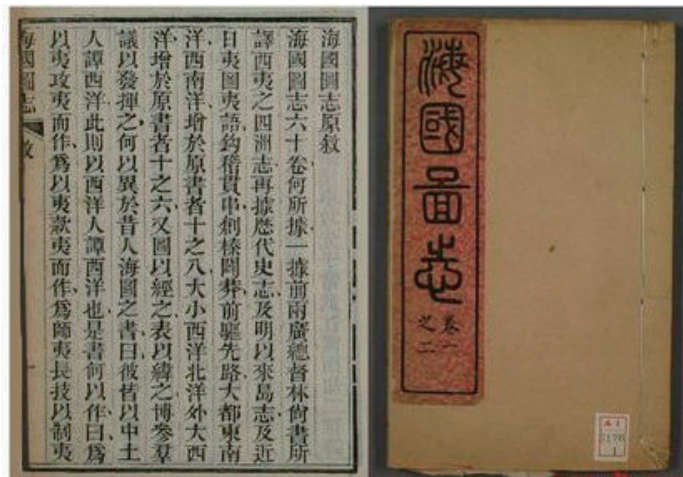 海國圖志原敘
海國圖志六十卷何所據一據前兩廣總督林尙書所
譯西夷之四洲志再據歷代史志及明以來島志及近
日夷圖夷語鈎稽貫串創榛闢莽前驅先路大都東南
洋西南洋增於原書者十之八大小西洋北洋外大西
洋增於原書者十之六又圖以經之表以緯之博參羣
議以發揮之何以異於昔人海圖之書曰彼皆以中土
人譚西洋此則以西洋人譚西洋也是書何以作曰爲
以夷攻夷而作爲以夷款夷而作爲師夷長技以制夷
海國圖志
敘
一
海國圖志
卷一
之二